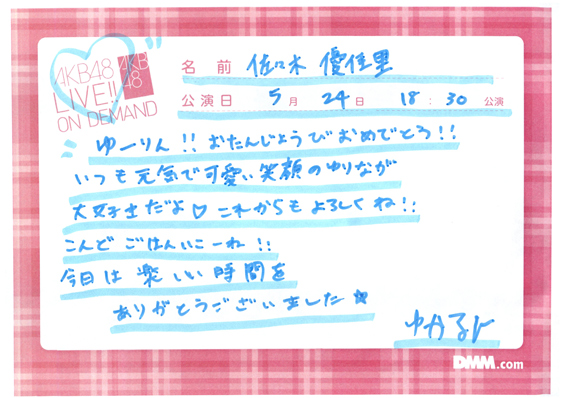 AKB48
LIVE!!
ON DEMAND
AKB
48
名前 佐々木 優佳里
公演日 5月 24日 18:30 公演
ゆーりん!! おたんじょうびおめでとう!!
いつも元気で可愛い笑顔のゆりなが
大好きだよ♡ これからもよろしくね!!
こんど ごはんいこーね!!
今日は 楽しい時間を
ありがとうございました☆
DMM.com